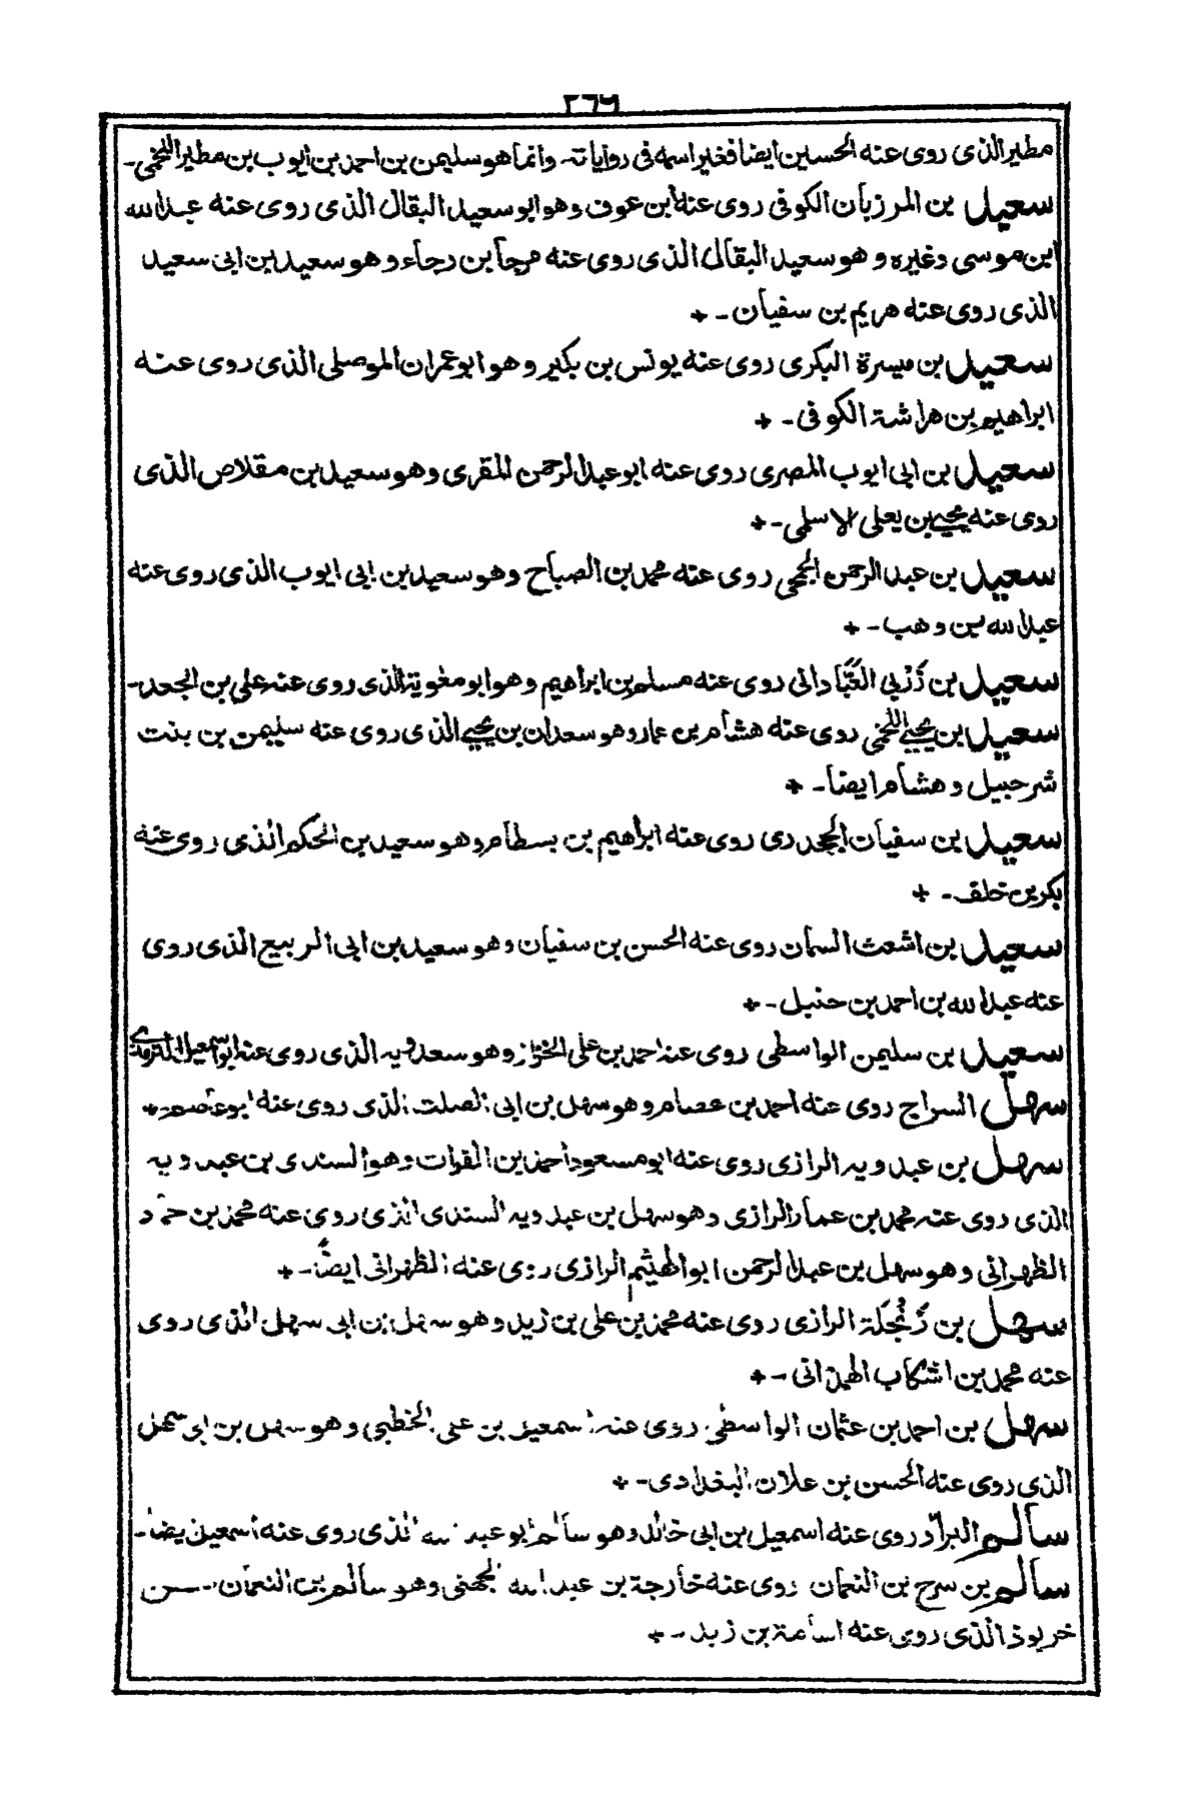 ٣٦٩
مطير الذى روى عنه الحسين ايضا فغير اسمه فى رواياته وانما هو سليمن بن احمد بن ايوب بن مطير اللخمى -
سعيد بن المرزبان الكوفى روى عنه ابن عوف وهو ابو سعيد البقال الذى روى عنه عبد الله
ابن موسى وغيره وهو سعيد البقال الذى روى عنه مرجأ بن رجاء وهو سعيد بن ابى سعيد
الذى روى عنه هريم بن سفيان - +
سعيد بن ميسرة البكرى روى عنه يونس بن بكير وهو ابو عمران الموصلى الذى روى عنه
ابراهيم بن هراشة الكوفى - +
سعيد بن ابى ايوب المصرى روى عنه ابو عبد الرحمن المقرى وهو سعيد بن مقلاص الذى
روى عنه يحيى بن يعلى الاسلمى - +
سعيد بن عبد الرحمن الجمحى روى عنه محمد بن الصباح وهو سعيد بن ابى ايوب الذى روى عنه
عبد الله بن وهب - +
سعيد بن زَرْبى العَبَّادانى روى عنه مسلم بن ابراهيم وهو ابو معٰوية الذى روى عنه على بن الجعد -
سعيد بن يحيى اللخمى روى عنه هشام بن عمار وهو سعدان بن يحيى الذى روى عنه سليمن بن بنت
شرحبيل وهشام ايضا - +
سعيد بن سفيان الجحدرى روى عنه ابراهيم بن بسطام وهو سعيد بن الحكم الذى روى عنه
بكر بن خلف - +
سعيد بن اشعث السمان روى عنه الحسن بن سفيان وهو سعيد بن ابى الربيع الذى روى
عنه عبد الله بن احمد بن حنبل - +
سعيد بن سليمن الواسطى روى عنه احمد بن على الخزاز وهو سعدويه الذى روى عنه ابو اسمعيل الترمذى
سهل السراج روى عنه احمد بن عصام وهو سهل بن ابى الصلت الذى روى عنه ابو عاصم +
سهل بن عبدويه الرازى روى عنه ابو مسعود احمد بن الفرات وهو السندى بن عبدويه
الذى روى عنه محمد بن عمار الرازى وهو سهل بن عبدويه السندى الذى روى عنه محمد بن حماد
الظهرانى وهو سهل بن عبد الرحمن ابو الهيثم الرازى روى عنه الظهرانى ايضًا - +
سهل بن زَنْجَلَة الرازى روى عنه محمد بن على بن زيد وهو سهل بن ابى سهل الذى روى
عنه محمد بن اشكاب الهمذانى - +
سهل بن احمد بن عثمان الواسطى روى عنه اسمعيل بن على الخطبى وهو سهل بن ابى سهل
الذى روى عنه الحسن بن علان البغدادى - +
سالم البرّاد روى عنه اسمعيل بن ابى خالد وهو سالم ابو عبد الله الذى روى عنه اسمعيل ايضا -
سالم بن سرج بن النعمان روى عنه خارجة بن عبد الله الجهنى وهو سالم بن النعمان -
خربوذ الذى روى عنه اسامة بن زيد - +